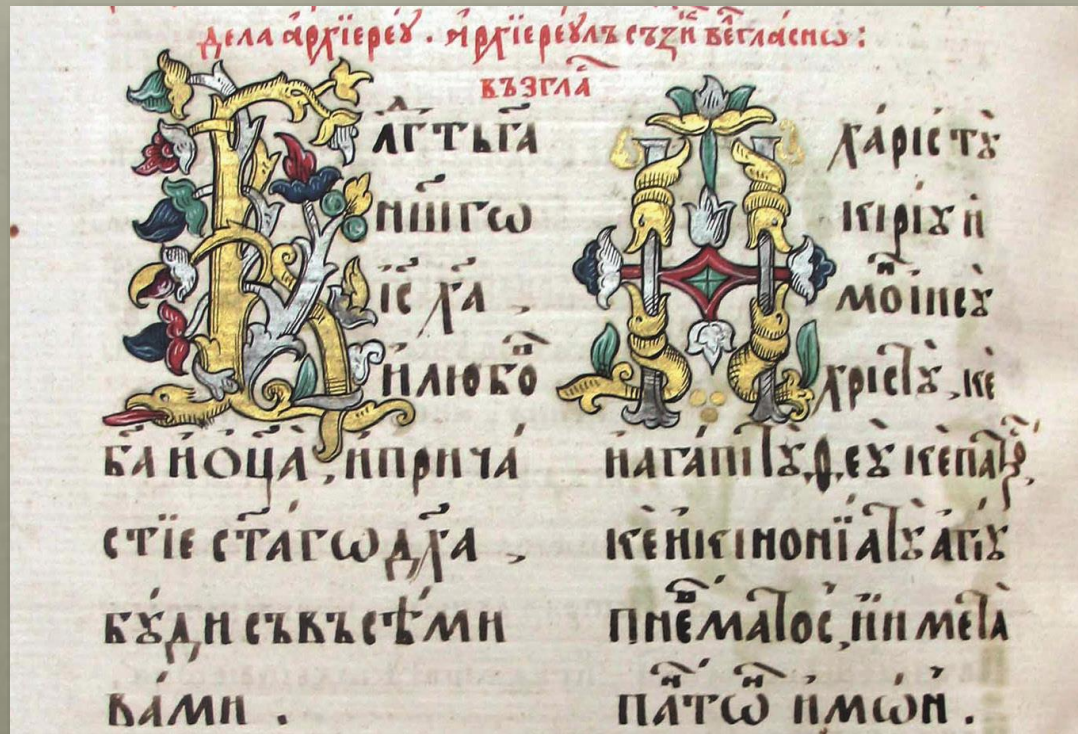 дела́ а́рхїере́ꙋ . а́рхїере́ꙋлъ съзи́ⷱ ве́гла́снѡ :
въꙁглаⷭ҇
Блⷣг҃тьꙗ
нш҃гѡ
і҆с҃ х҃а ,
и҆любоⷡ҇
б҃а и҆ѻ҆ц҃а̀ , и҆прича́
стїе ст҃а́гѡ дх҃а ,
бꙋ́ди съвъсѣ́ми
ва́ми .
И ха́рістꙋ̀
кирі́ꙋ и҆
моⷩ҇ і҆исꙋ̀
хрісꙋ̀т , кѐ
и҆ага́пи тꙋ̀ , ѳеꙋ̀ кѐ патрⷪ҇
кѐ и҆кіноні́а тꙋ̀ а҆гі́ꙋ
пнеⷡ҇́матос , і҆и мета̀
паⷩ҇́тѡⷩ҇ и҆мѡ́н .